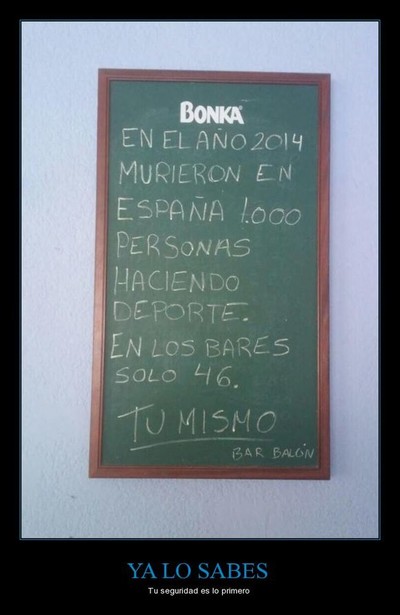 BONKA
EN EL AÑO 2014
MURIERON EN
ESPAÑA 1.000
PERSONAS
HACIENDO
DEPORTE.
EN LOS BARES
SOLO 46.
TU MISMO
BAR BALÓN
YA LO SABES
Tu seguridad es lo primero